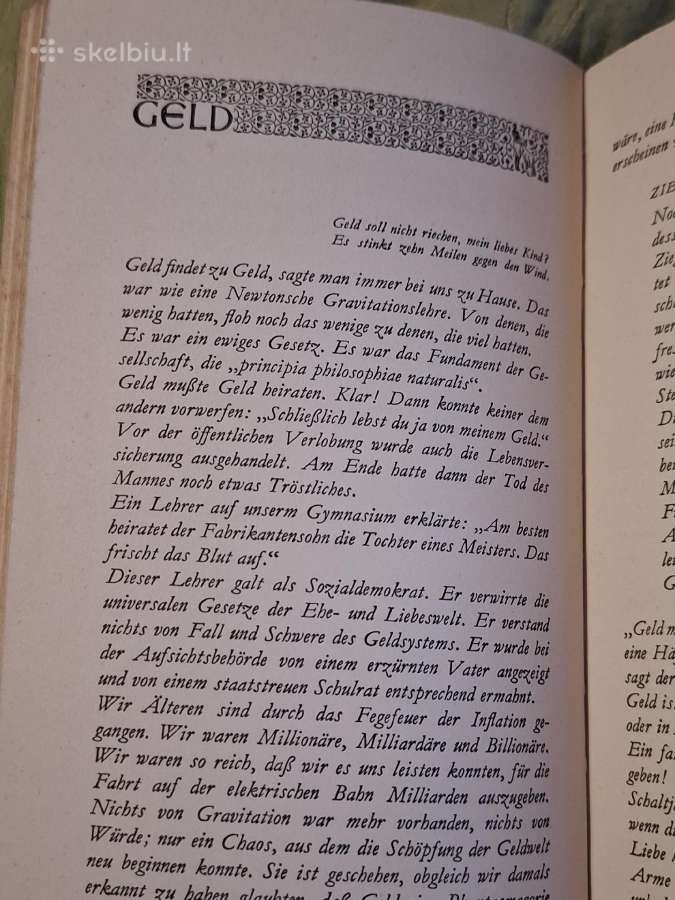 skelbiu.lt
GELD
Geld soll nicht riechen, mein liebes Kind?
Es stinkt zehn Meilen gegen den Wind.
Geld findet zu Geld, sagte man immer bei uns zu Hause. Das
war wie eine Newtonsche Gravitationslehre. Von denen, die
wenig hatten, floh noch das wenige zu denen, die viel hatten.
Es war ein ewiges Gesetz. Es war das Fundament der Ge-
sellschaft, die „principia philosophiae naturalis“.
Geld mußte Geld heiraten. Klar! Dann konnte keiner dem
andern vorwerfen: „Schließlich lebst du ja von meinem Geld.“
Vor der öffentlichen Verlobung wurde auch die Lebensver-
sicherung ausgehandelt. Am Ende hatte dann der Tod des
Mannes noch etwas Tröstliches.
Ein Lehrer auf unserm Gymnasium erklärte: „Am besten
heiratet der Fabrikantensohn die Tochter eines Meisters. Das
frischt das Blut auf.“
Dieser Lehrer galt als Sozialdemokrat. Er verwirrte die
universalen Gesetze der Ehe- und Liebeswelt. Er verstand
nichts von Fall und Schwere des Geldsystems. Er wurde bei
der Aufsichtsbehörde von einem erzürnten Vater angezeigt
und von einem staatstreuen Schulrat entsprechend ermahnt.
Wir Älteren sind durch das Fegefeuer der Inflation ge-
gangen. Wir waren Millionäre, Milliardäre und Billionäre.
Wir waren so reich, daß wir es uns leisten konnten, für die
Fahrt auf der elektrischen Bahn Milliarden auszugeben.
Nichts von Gravitation war mehr vorhanden, nichts von
Würde; nur ein Chaos, aus dem die Schöpfung der Geldwelt
neu beginnen konnte. Sie ist geschehen, obgleich wir damals
erkannt zu haben glaubten, daß Geld
wäre, eine
erscheinen
ZIE
Noc
dess
Zie
tet
sch
wer
fres
wie
Ste
Di
sei
be
M
F
A
lei
G
„Geld m
eine Hä
sagt der
Geld is
oder in
Ein fa
geben!
Schaltj
wenn d
Liebe
Arme